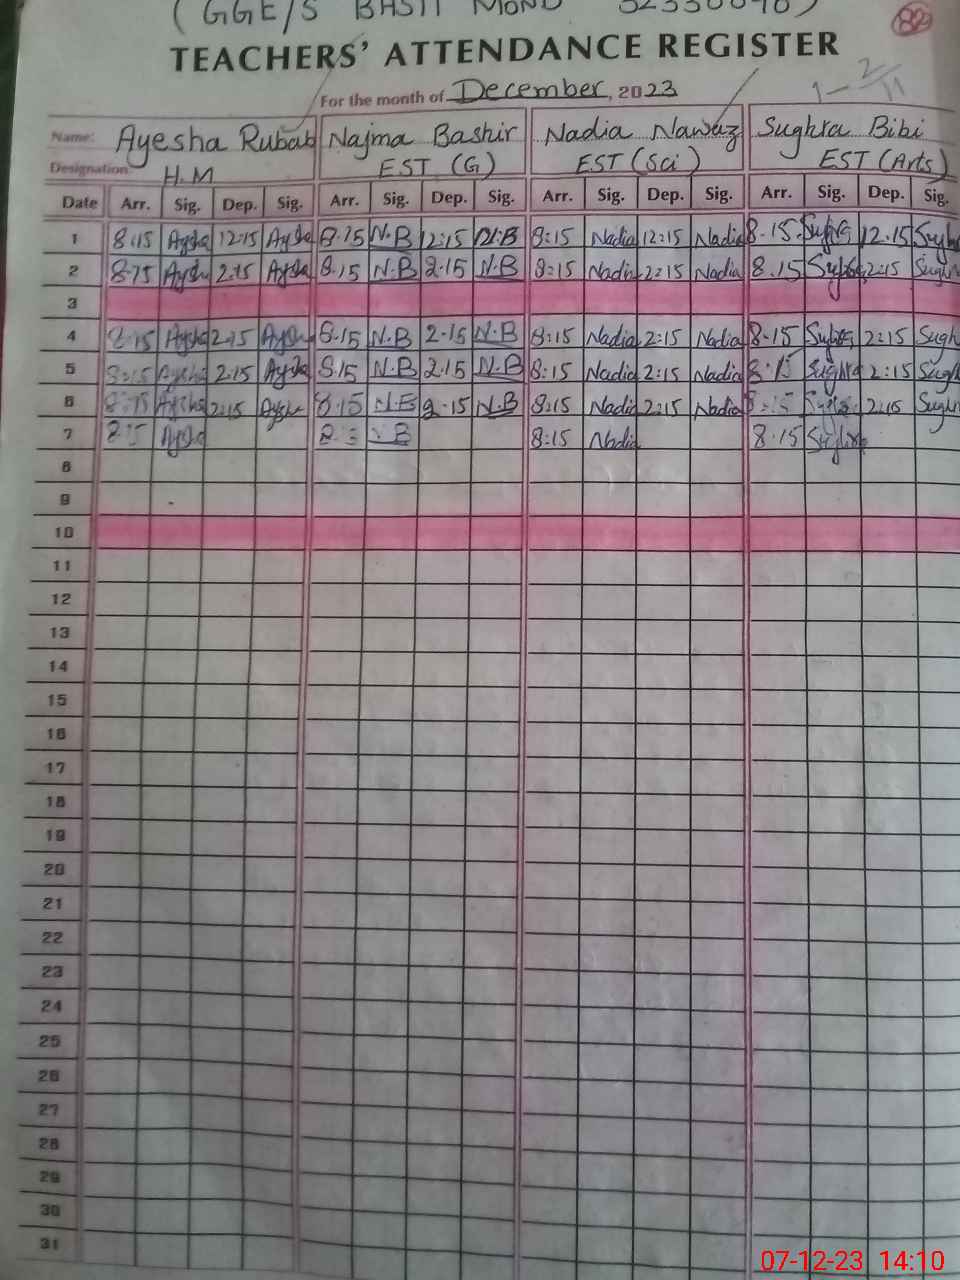 (GGE/S BASTI MOND 32330090)
82
TEACHERS' ATTENDANCE REGISTER
For the month of December, 2023
1 — 2/11
Name: Ayesha Rubab Najma Bashir Nadia Nawaz Sughra Bibi
Designation: H.M EST (G) EST (Sci) EST (Arts)
Date Arr. Sig. Dep. Sig. Arr. Sig. Dep. Sig. Arr. Sig. Dep. Sig. Arr. Sig. Dep. Sig.
1 8:15 Aysha 12:15 Aysha 8.15 N.B 12:15 N.B 8:15 Nadia 12:15 Nadia 8.15 Sughra 12.15 Sughra
2 8.15 Aysha 2:15 Aysha 8.15 N.B 2.15 N.B 8:15 Nadia 2:15 Nadia 8.15 Sughra 2:15 Sughra
3
4 8:15 Aysha 2:15 Aysha 8.15 N.B 2.15 N.B 8:15 Nadia 2:15 Nadia 8.15 Sughra 2:15 Sugh
5 8:15 Aysha 2:15 Aysha 8.15 N.B 2.15 N.B 8:15 Nadia 2:15 Nadia 8.15 Sughra 2:15 Sugh
6 8:15 Aysha 2:15 Aysha 8.15 N.B 2.15 N.B 8:15 Nadia 2:15 Nadia 8:15 Sughra 2:15 Sugh
7 8:15 Aysha N.B 8:15 Nadia 8.15 Sughra
8
9
10
11
12
13
14
15
16
17
18
19
20
21
22
23
24
25
26
27
28
29
30
31
07-12-23 14:10